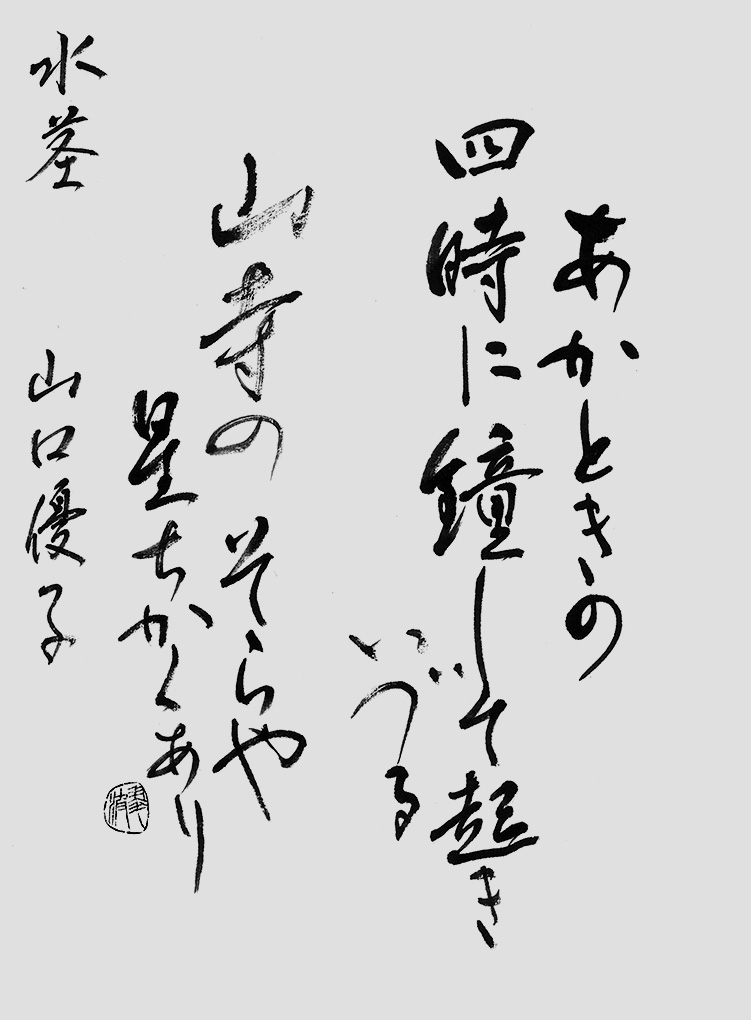 あかときの
四時に鐘して起き
いづる
山寺のそらや
星ちかくあり
水茎 山口優子